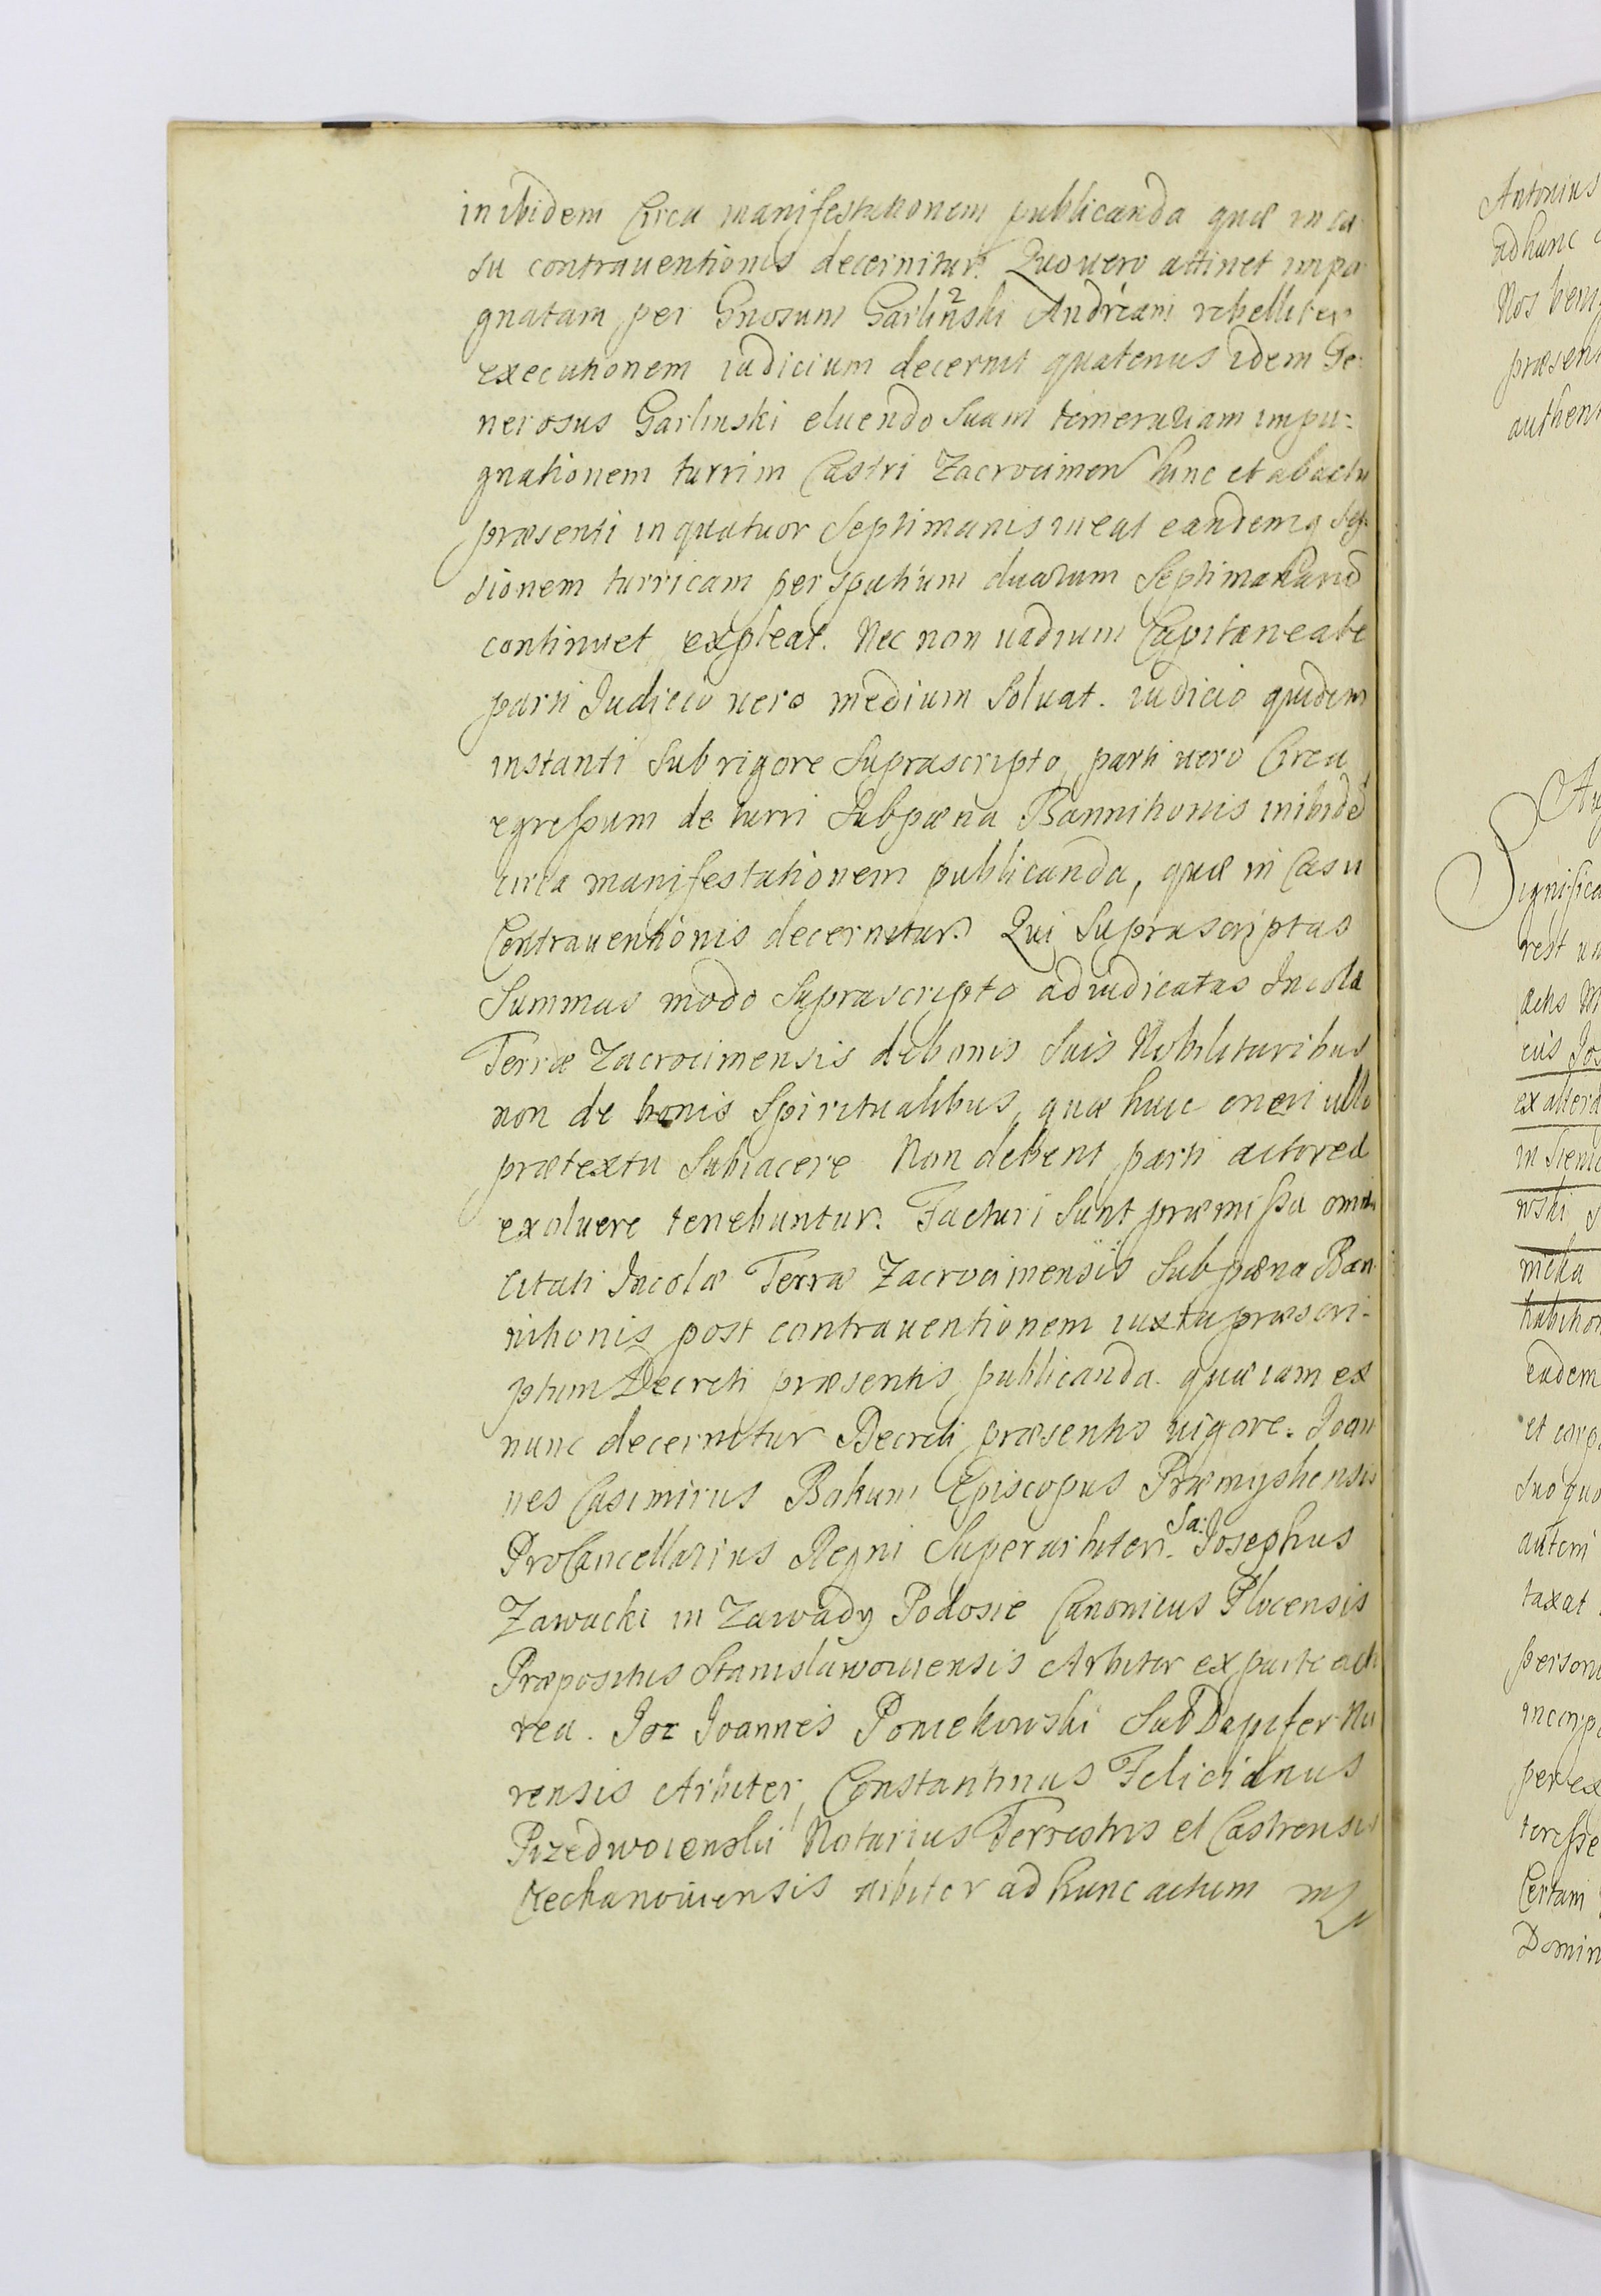 inibidem Circa manifestationem publicanda quæ in ca
su contrauentionis decernitur. Quo uero attinet impu
gnatam per Gnosum Garlinski Andream rebelliter
executionem iudicium decernit quatenus idem Ge:
nerosus Garlinski eluendo Suam temerariam impu:
gnationem turrim Castri Zacrocimen hinc et ab actu
præsenti in quatuor Septimanis ineat eandemq Ses
sionem turricam per spatium duarum Septimanarū
continuet expleat. Nec non uadium Capitaneale
parti Judicio uero medium Soluat. iudicio quidem
instanti Sub rigore Suprascripto, parti uero Circa
egressum de turri Sub pæna Bannitionis inibidē
circa manifestationem publicanda, quæ in Casu
Contrauentionis decernitur. Qui Suprascriptas
Summas modo Suprascripto adiudicatas Incolæ
Terræ Zacrocimensis de bonis Suis Nobilitaribus
non de bonis Spiritualibus, quæ huic oneri ullo
prætextu Subiacere Non debent parti actoreæ
exoluere tenebuntur. Facturi Sunt præmissa omnia
Citati Incolæ Terræ Zacrocimensis Sub pæna Ban
nitionis post contrauentionem iuxta præscri-
ptum Decreti præsentis publicanda. quæ iam ex
nunc decernitur Decreti præsentis uigore. Joan
nes Casimirus Bokum Episcopus Præmysliensis
ProCancellarius Regni Superarbiter. Sa: Josephus
Zawacki in Zawady Podosie Canonicus Plocensis
Præpositus Stanislawouiensis Arbiter ex parte acto
rea. Joz Joannes Poniekowski SubDapifer Nu
rensis Arbiter, Constantinus Felicianus
Przedwoienski Notarius Terrestris et Castrensis
Ciechanouiensis arbiter ad hunc actum mp
Antonius
ad hunc
Nos
præsen
authen
Significa
rest
actis
cus Jos
ex altera
in
wski
nicka
habition
eadem
et corp
suo quo
autem
taxat
person
incorp
per ex
teresse
Certam
Domin